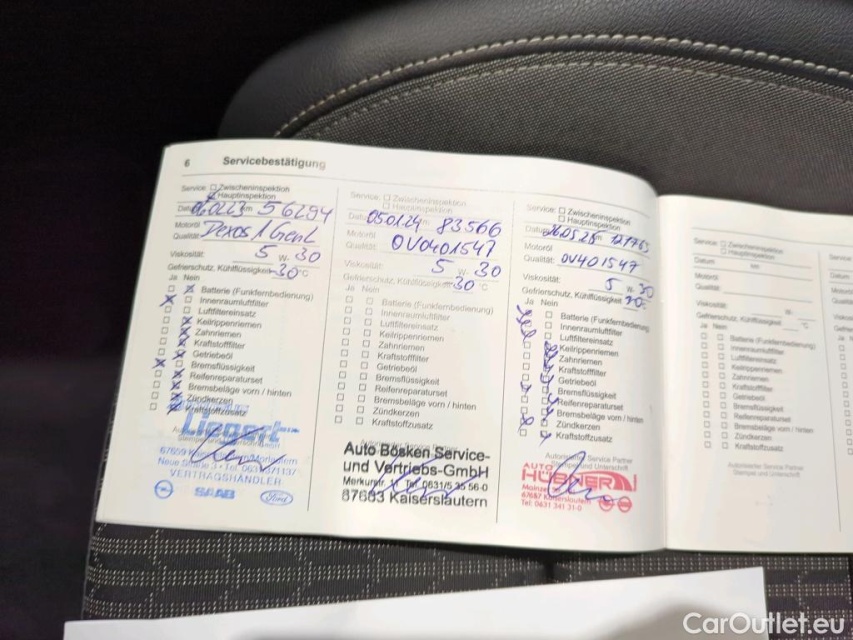 6 Servicebestätigung
Service: Zwischeninspektion
Hauptinspektion
Datum 060223 km 56294
Motoröl
Qualität: Dexos 1 Gen2
Viskosität: 5 W- 30
Gefrierschutz, Kühlflüssigkeit -30 °C
Ja Nein
Batterie (Funkfernbedienung)
Innenraumluftfilter
Luftfiltereinsatz
Keilrippenriemen
Zahnriemen
Kraftstofffilter
Getriebeöl
Bremsflüssigkeit
Reifenreparaturset
Bremsbeläge vorn / hinten
Zündkerzen
Kraftstoffzusatz
Liegert
Neue Straße 3
VERTRAGSHÄNDLER
SAAB
Ford
Service: Zwischeninspektion
Hauptinspektion
Datum 050124 83566
Motoröl
Qualität: OV0401547
Viskosität: 5 W- 30
Gefrierschutz, Kühlflüssigkeit -30 °C
Ja Nein
Batterie (Funkfernbedienung)
Innenraumluftfilter
Luftfiltereinsatz
Keilrippenriemen
Zahnriemen
Kraftstofffilter
Getriebeöl
Bremsflüssigkeit
Reifenreparaturset
Bremsbeläge vorn / hinten
Zündkerzen
Kraftstoffzusatz
Auto Bösken Service-
und Vertriebs-GmbH
Tel. 0631/5 35 56-0
67663 Kaiserslautern
Service: Zwischeninspektion
Hauptinspektion
Motoröl
Qualität: OV401547
Viskosität: 5 W- 30
Gefrierschutz, Kühlflüssigkeit
Ja Nein
Batterie (Funkfernbedienung)
Innenraumluftfilter
Luftfiltereinsatz
Keilrippenriemen
Zahnriemen
Kraftstofffilter
Getriebeöl
Bremsflüssigkeit
Reifenreparaturset
Bremsbeläge vorn / hinten
Zündkerzen
Kraftstoffzusatz
AUTO
HÜBNER
Tel: 0631 341 31-0
Service: Zwischeninspektion
Hauptinspektion
Datum km
Motoröl
Qualität:
Viskosität: W-
Gefrierschutz, Kühlflüssigkeit °C
Ja Nein
Batterie (Funkfernbedienung)
Innenraumluftfilter
Luftfiltereinsatz
Keilrippenriemen
Zahnriemen
Kraftstofffilter
Getriebeöl
Bremsflüssigkeit
Reifenreparaturset
Bremsbeläge vorn / hinten
Zündkerzen
Kraftstoffzusatz
Autorisierter Service Partner
Stempel und Unterschrift
CarOutlet.eu